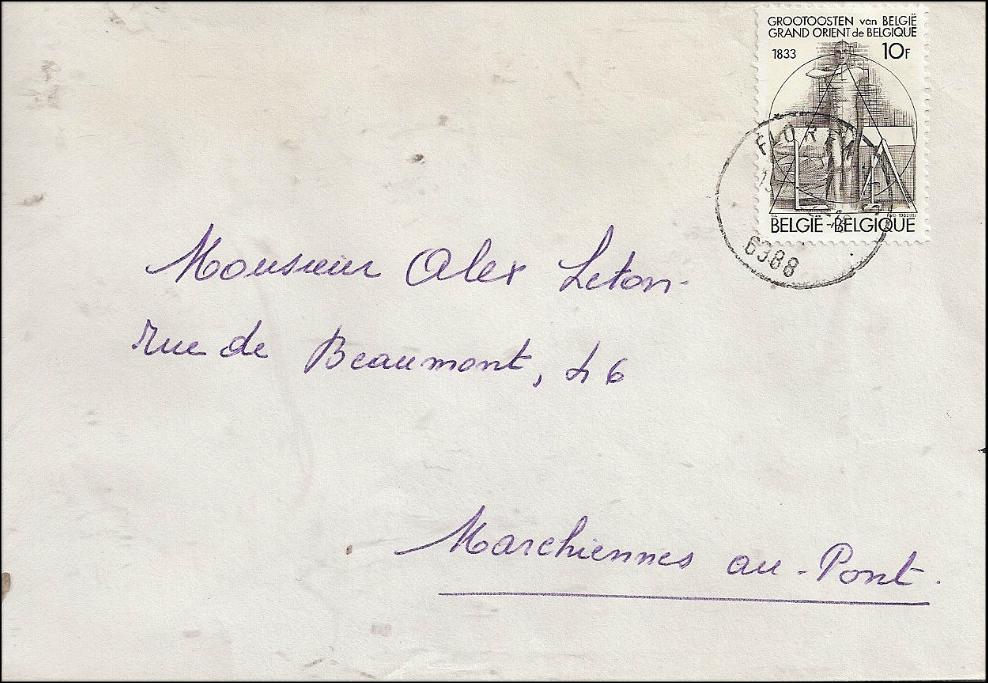 GROOTOOSTEN van BELGIË
GRAND ORIENT de BELGIQUE
1833 10F
BELGIË-BELGIQUE
6388
Monsieur Alex Leton
rue de Beaumont, 46
Marchiennes au-Pont.